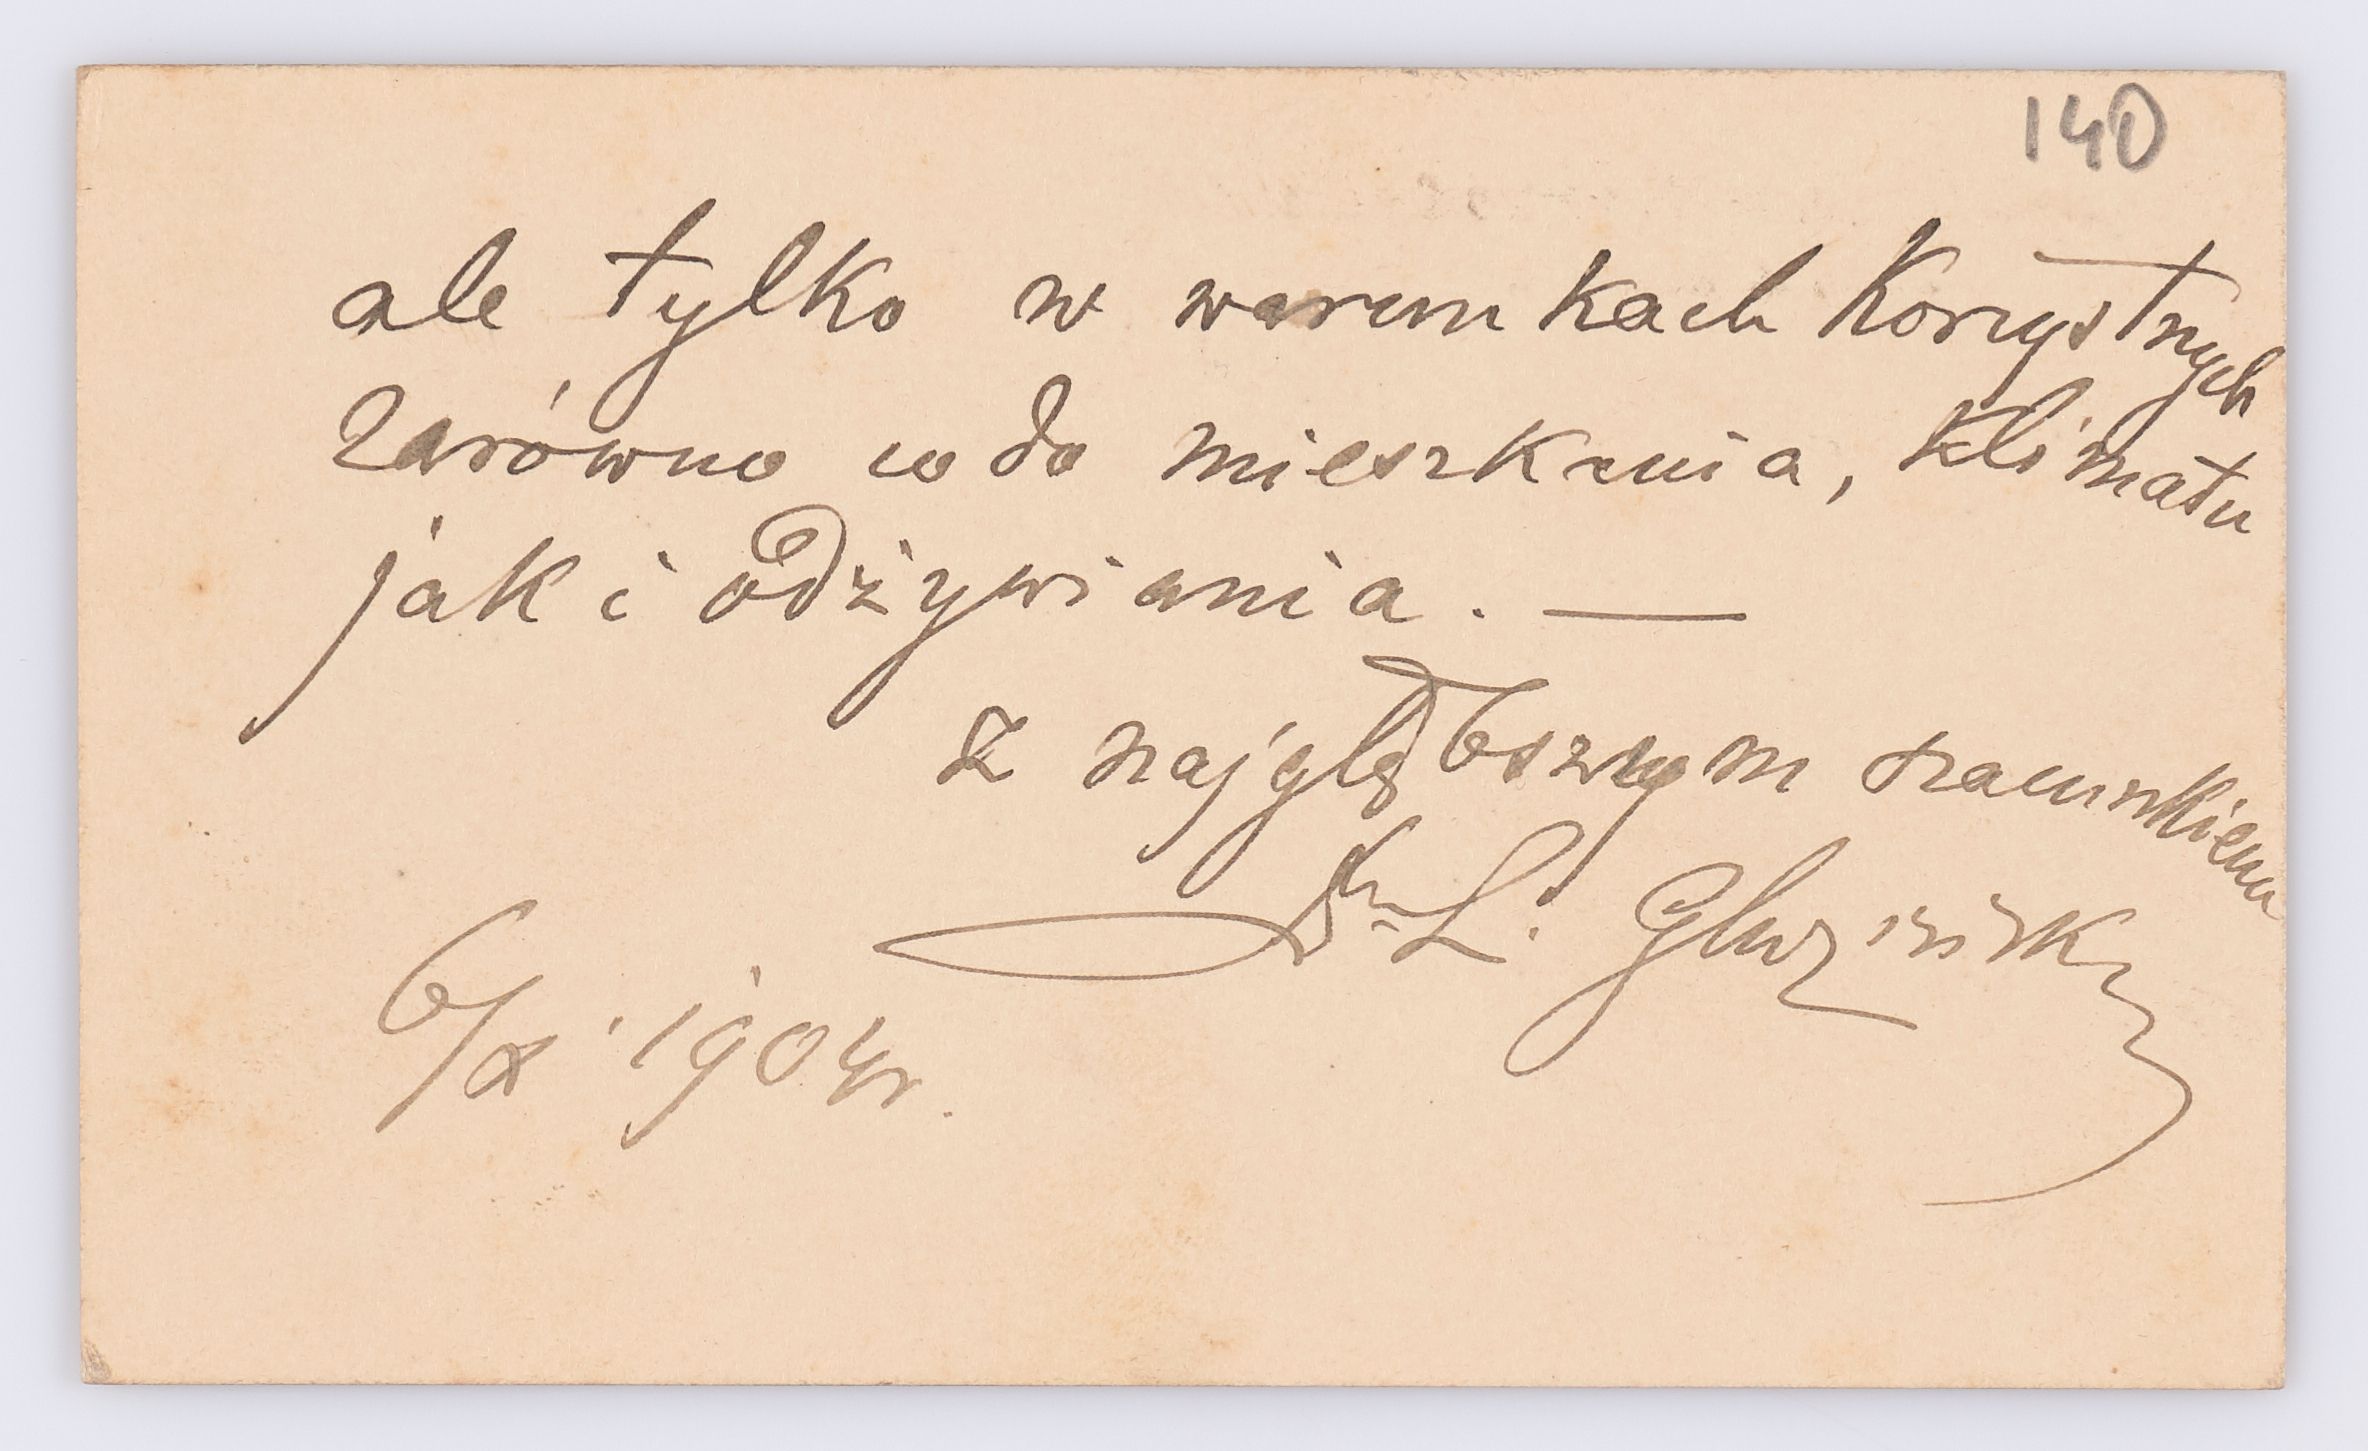 140
ale tylko w warunkach korzystnych
zarówno co do mieszkania, klimatu
jak i odżywiania. —
Z najgłębszym szacunkiem
Dr L. Gluziński
6/X 1904r.